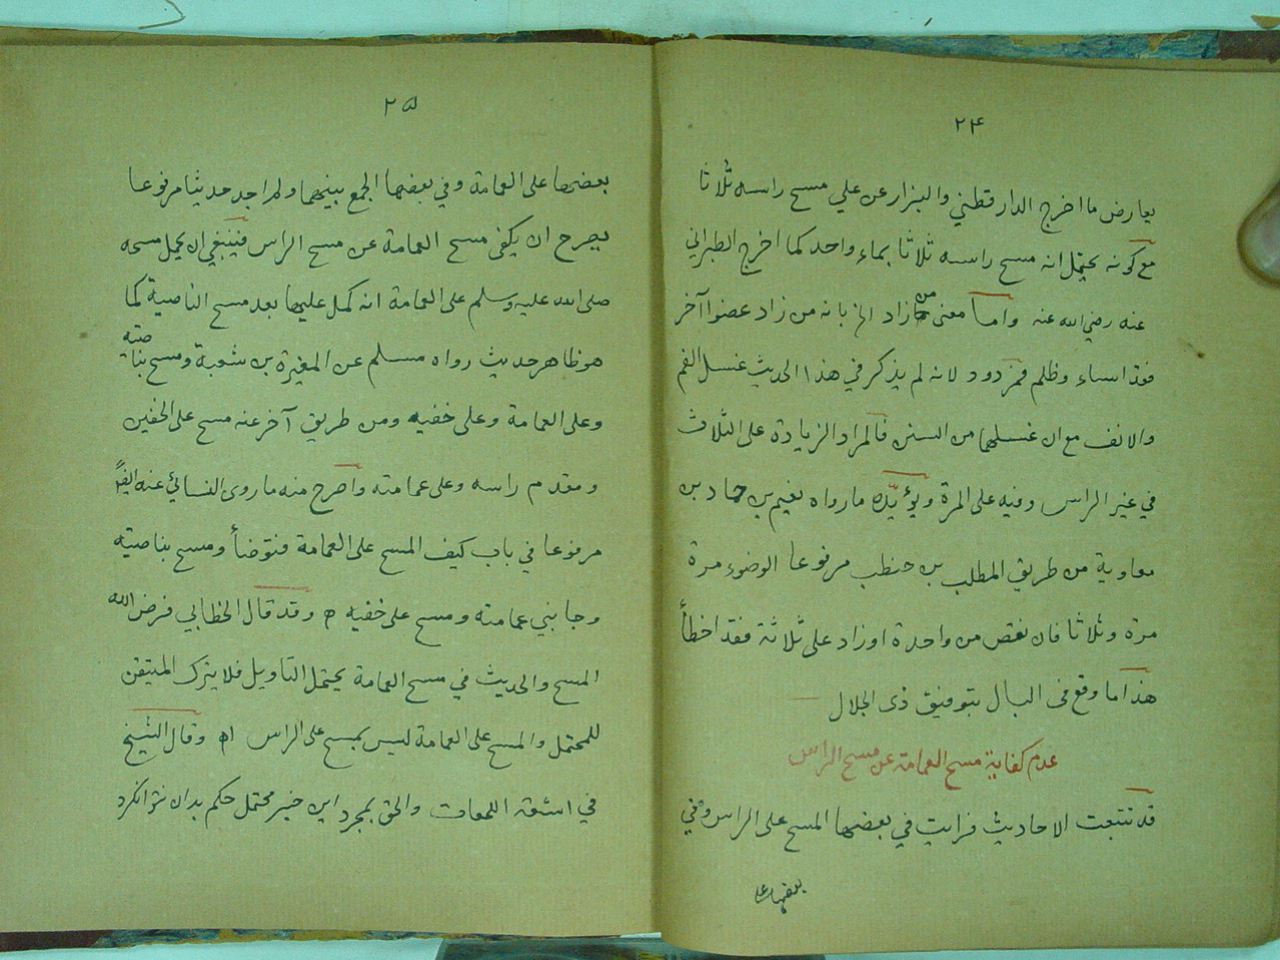 ٢٤
يعارض ما اخرج الدارقطني والبزار عن علي مسح راسه ثلاثا
مع كونه يحتمل انه مسح راسه ثلاثا بماء واحد كما اخرج الطبراني
عنه رضي الله عنه واما معنى من زاد الخ بانه من زاد عضوا آخر
فقد اساء وظلم فمردود لانه لم يذكر في هذا الحديث غسل الفم
والانف مع ان غسلهما من السنن فالمراد الزيادة على الثلاث
في غير الراس وفيه على المرة ويؤيده ما رواه نعيم بن حماد بن
معاوية من طريق المطلب بن حنطب مرفوعا الوضوء مرة
مرة وثلاثا فان نقص من واحدة او زاد على ثلاثة فقد اخطأ
هذا ما وقع فى البال بتوفيق ذى الجلال
عدم كفاية مسح العمامة عن مسح الراس
قد تتبعت الاحاديث فرايت في بعضها المسح على الراس وفي
بعضها على
٢٥
بعضها على العمامة وفي بعضها الجمع بينهما ولم اجد حديثا مرفوعا
يصرح ان يكفى مسح العمامة عن مسح الراس فينبغي ان يحمل مسحه
صلى الله عليه وسلم على العمامة انه كمل عليها بعد مسح الناصية كما
هو ظاهر حديث رواه مسلم عن المغيرة بن شعبة ومسح بناصيته
وعلى العمامة وعلى خفيه ومن طريق آخر عنه مسح على الخفين
ومقدم راسه وعلى عمامته واصرح منه ما روى النسائي عنه ايضاً
مرفوعا في باب كيف المسح على العمامة فتوضأ ومسح بناصيته
وجانبي عمامته ومسح على خفيه ٥ وقد قال الخطابي فرض الله
المسح والحديث في مسح العمامة يحتمل التاويل فلا يترك المتيقن
للمحتمل والمسح على العمامة ليس بمسح على الراس اه وقال الشيخ
في اشعة اللمعات والحق بمجرد اين خبر محتمل حكم بدان نتوانكرد